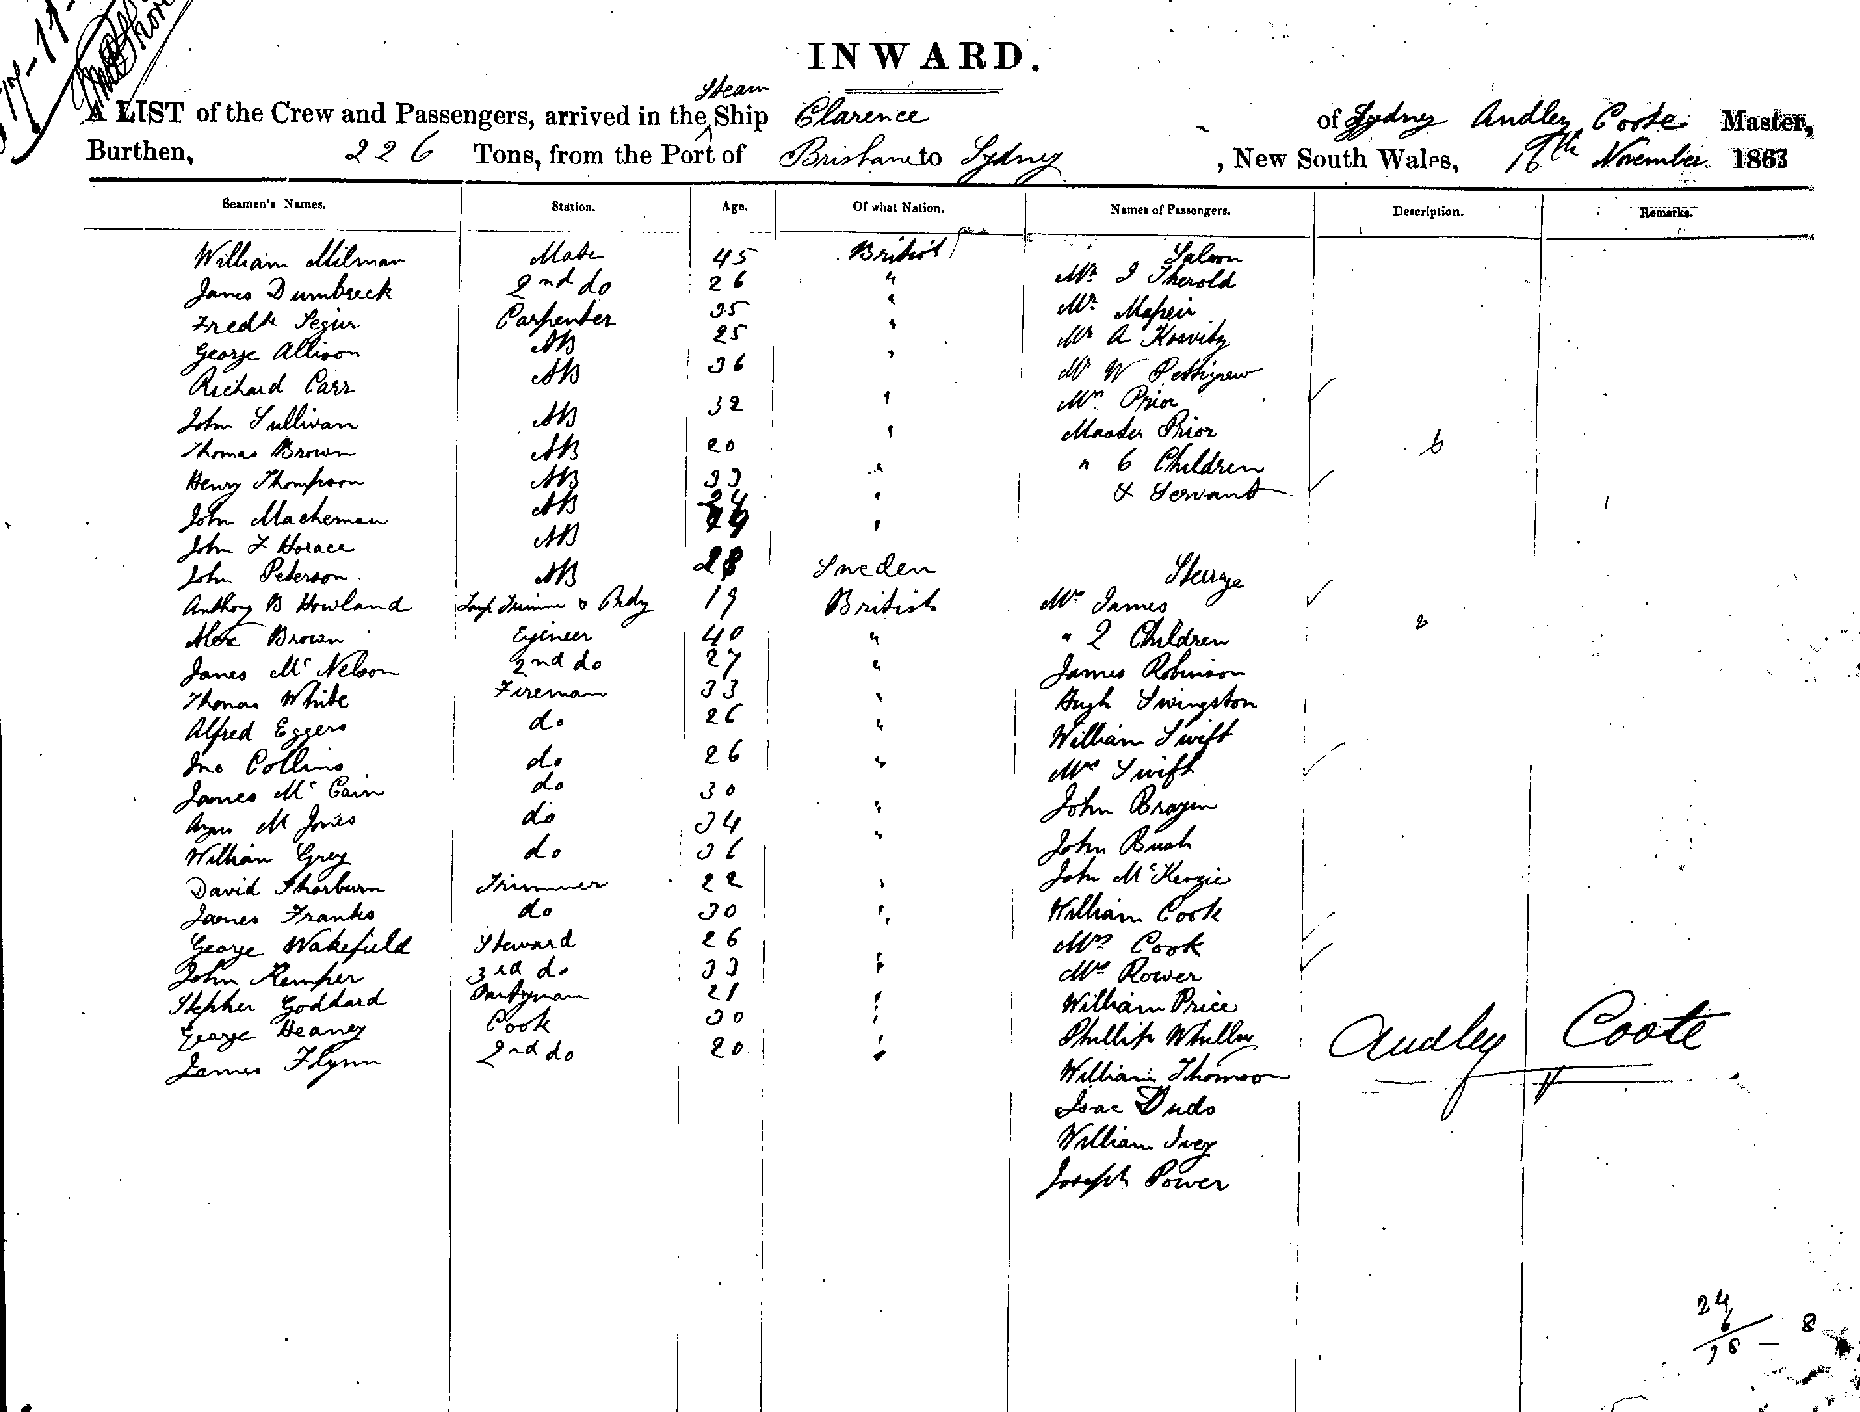 17-11-
INWARD.
Steam
A LIST of the Crew and Passengers, arrived in the Ship Clarence of Sydney Audley Coote Master,
Burthen, 226 Tons, from the Port of Brisbane to Sydney, New South Wales, 16th November 1863
Seamen's Names. Station. Age. Of what Nation. Names of Passengers. Description. Remarks.
William Milman Mate 45 British Saloon
James Dumbreck 2nd do 26 " Mr J Therold
Fredk Segur Carpenter 35 " Mr
George Allison AB 25 " Mr A
Richard Carr AB 36 " Mr W Pettigrew
John Sullivan AB 32 " Mrs Prior
Thomas Brown AB 20 " Master Prior
Henry Thompson AB 33 " " 6 Children 6
John AB 24 " & Servant
John F Horace AB 29 "
John Peterson AB 28 Sweden Steerge
Anthony B Howland 19 British Mrs James
Alex Brown Egineer 40 " " 2 Children 2
James Mc Nelson 2nd do 27 " James Robinson
Thomas White Fireman 33 " Hugh Livingston
Alfred Eggers do 26 " William Swift
Jno Collins do 26 " Mrs Swift
James Mc Cain do 30 " John Brazin
M Jones do 34 " John Bush
William Grey do 36 John McKenzie
David Thorburn Trimmer 22 " William Cook
James Franks do 30 " Mrs Cook
George Wakefield Steward 26 " Mrs Rower
John Kemper 3rd do 33 " William Price
Stepher Goddard Pantryman 21 " Phillip
George Heaney Cook 30 " William Thomson
James Flynn 2nd do 20 " Isac Duds
William Ivey
Joseph Power
Audley Coote
24
6
18 - 8